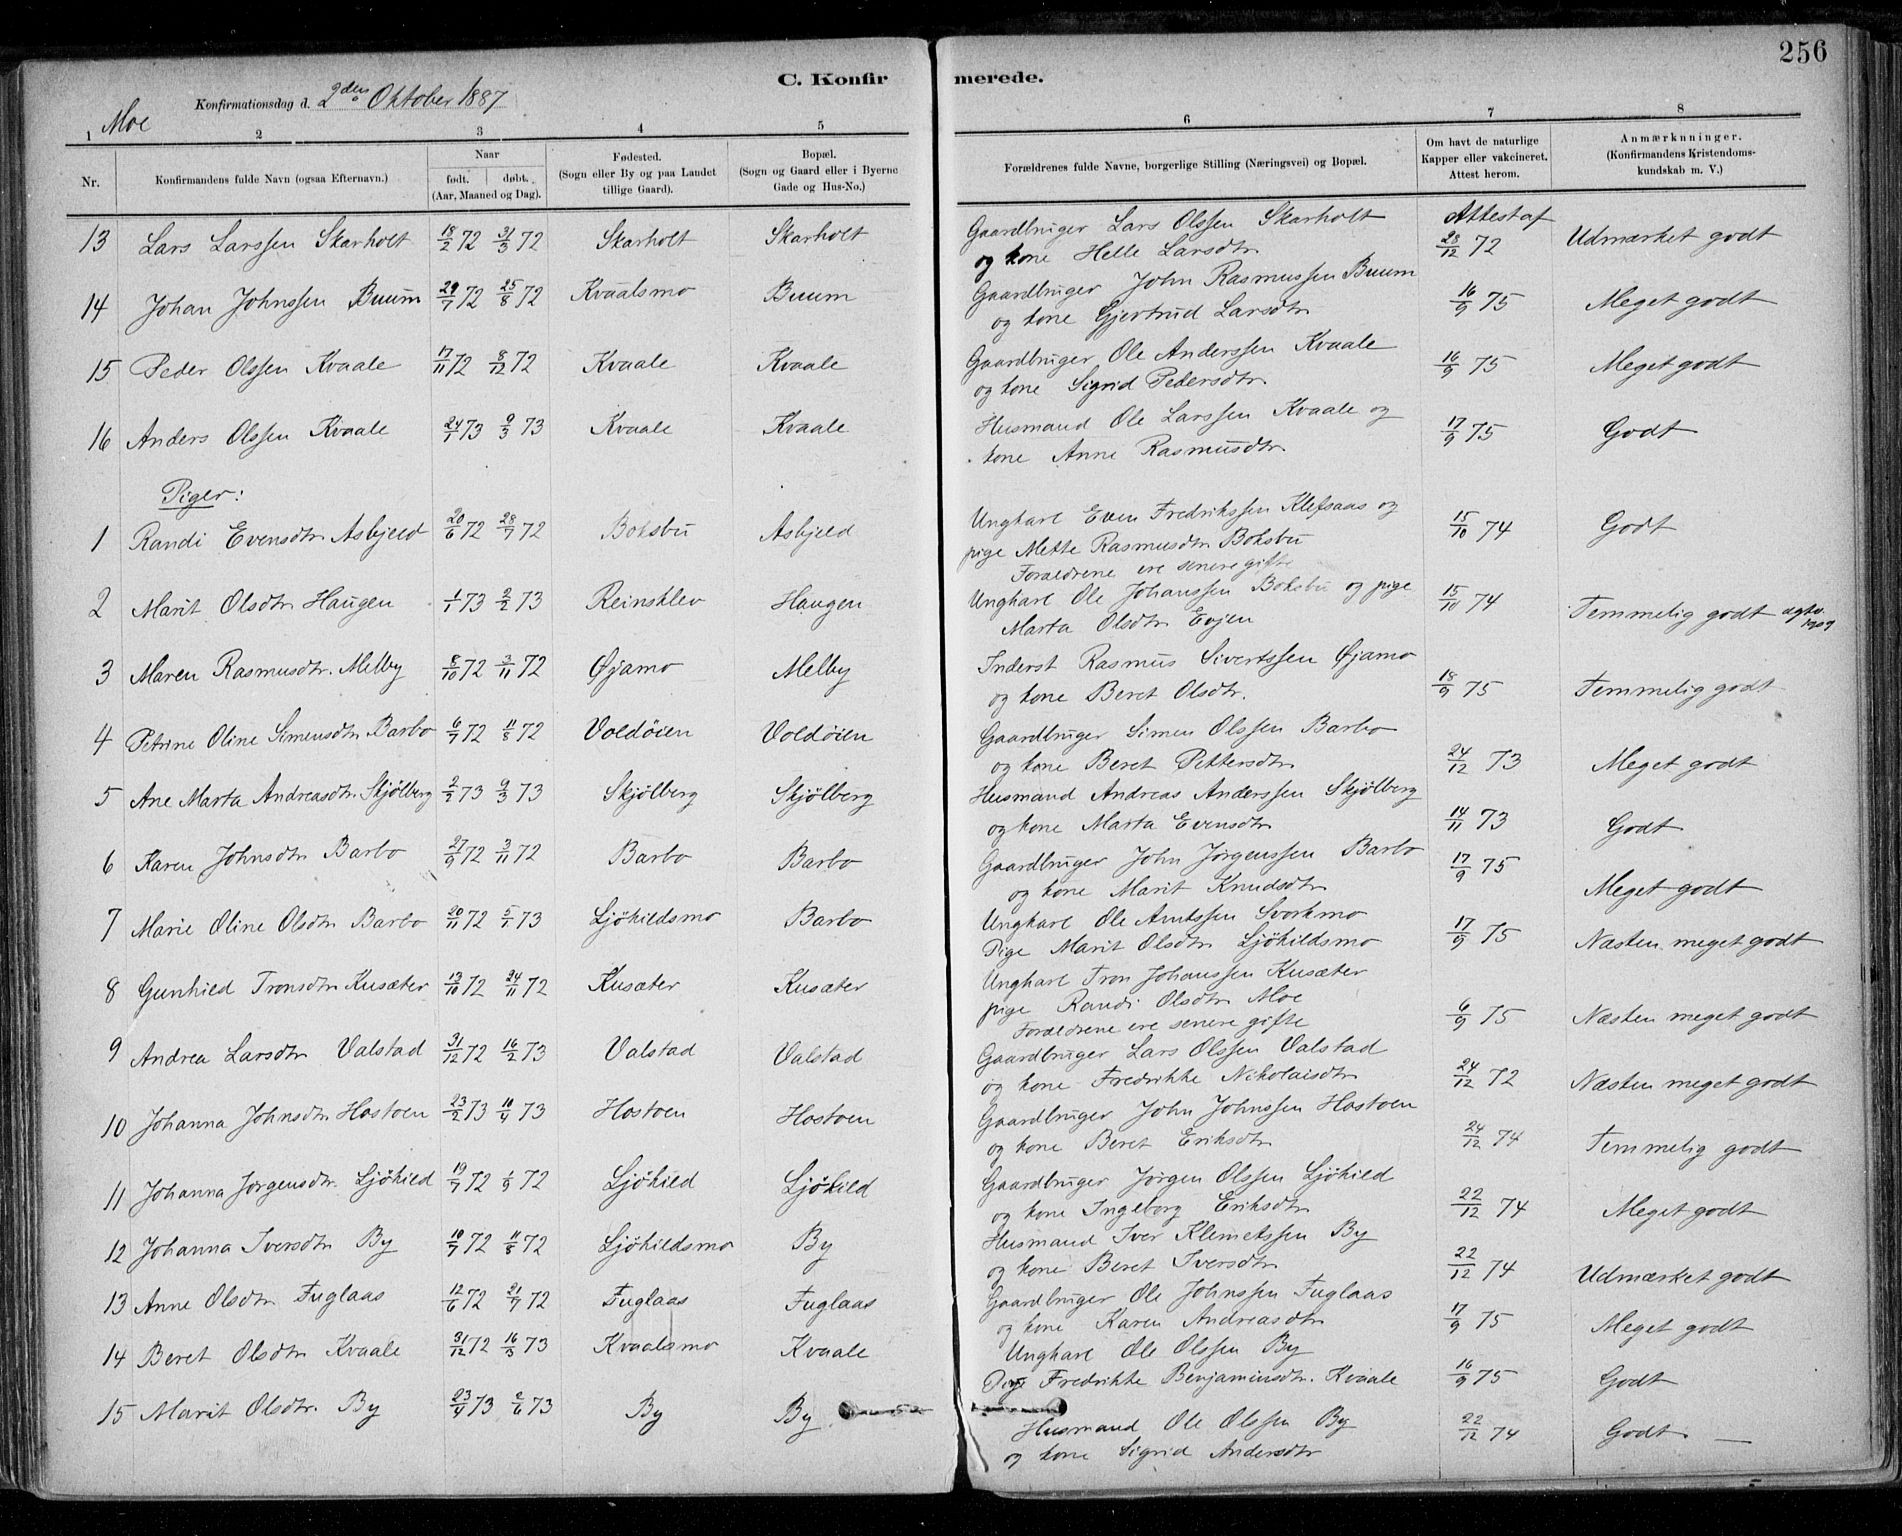 256
C. Konfirmerede.
Konfirmationsdag d. 2den Oktober 1887
Moe
1 2 3 4 5 6 7 8
Nr.
Konfirmandens fulde Navn (ogsaa Efternavn).
Naar født. døbt. (Aar, Maaned og Dag).
Fødested. (Sogn eller By og paa Landet tillige Gaard).
Bopæl. (Sogn og Gaard eller i Byerne Gade og Hus-No.)
Forældrenes fulde Navne, borgerlige Stilling (Næringsvei) og Bopæl.
Om havt de naturlige Kapper eller vakcineret. Attest herom.
Anmærkninger. (Konfirmandens Kristendomskundskab m. V.)
13 Lars Larssen Skarholt 18/2 72 31/3 72 Skarholt Skarholt Gaardbruger Lars Olssen Skarholt Attest af
og kone Helle Larsdtr 28/12 72 Udmærket godt
14 Johan Johnssen Buum 29/7 72 25/8 72 Kvaalsmo Buum Gaardbruger John Rasmussen Buum
og kone Gjertrud Larsdtr 16/9 75 Meget godt
15 Peder Olssen Kvaale 17/11 72 8/12 72 Kvaale Kvaale Gaardbruger Ole Anderssen Kvaale
og kone Sigrid Pedersdtr. 16/9 75 Meget godt
16 Anders Olssen Kvaale 24/1 73 9/3 73 Kvaale Kvaale Husmand Ole Larssen Kvaale og
kone Anne Rasmusdtr. 17/9 75 Godt
Piger:
1 Randi Evensdtr. Asbjeld 20/6 72 28/7 72 Boksbu Asbjeld Ungkarl Even Fredrikssen Klefsaas og
pige Mette Rasmusdtr Boksbu 15/10 74 Godt
Forældrene ere senere gifte
2 Marit Olsdtr Haugen 1/1 73 2/2 73 Reinsklev Haugen Ungkarl Ole Johanssen Boksbu og pige
Marta Olsdtr Evjen 15/10 74 Temmelig godt 1909
3 Maren Rasmusdtr. Melby 8/10 72 3/11 72 Øyamo Melby Inderst Rasmus Sivertssen Øyamo
og kone Beret Olsdtr. 18/9 75 Temmelig godt
4 Petrine Oline Simensdtr Barbo 6/7 72 11/8 72 Voldøien Voldøien Gaardbruger Simen Olssen Barbo
og kone Beret Pettersdtr 24/12 73 Meget godt
5 Ane Marta Andreasdtr. Skjølberg 2/2 73 9/3 73 Skjølberg Skjølberg Husmand Andreas Anderssen Skjølberg
og kone Marta Evensdtr 14/11 73 Godt
6 Karen Johnsdtr Barbo 27/9 72 3/11 72 Barbo Barbo Gaardbruger John Jørgenssen Barbo
og kone Marit Knudsdtr 17/9 75 Meget godt
7 Marie Oline Olsdtr Barbo 20/11 72 5/1 73 Ljøkildsmo Barbo Ungkarl Ole Arntssen Svorkmo
Pige Marit Olsdtr Ljøkildsmo 17/9 75 Næsten meget godt
8 Gunhild Tronsdtr Kusæter 13/10 72 24/11 72 Kusæter Kusæter Ungkarl Tron Johanssen Kusæter
pige Randi Olsdtr Moe 6/9 75 Næsten meget godt
Forældrene ere senere gifte
9 Andrea Larsdtr Valstad 31/12 72 16/2 73 Valstad Valstad Gaardbruger Lars Olssen Valstad
og kone Fredrikke Nikolaisdtr 24/12 72 Næsten meget godt
10 Johanna Johnsdtr Hostoen 23/2 73 10/4 73 Hostoen Hostoen Gaardbruger John Johnssen Hostoen
og kone Beret Eriksdtr 24/12 74 Temmelig godt
11 Johanna Jørgensdtr. Ljøkild 19/7 72 1/9 72 Ljøkild Ljøkild Gaardbruger Jørgen Olssen Ljøkild
og kone Ingeborg Eriksdtr 22/12 74 Meget godt
12 Johanna Iversdtr By 10/7 72 11/8 72 Ljøkildsmo By Husmand Iver Klemetssen By
og kone Beret Iversdtr 22/12 74 Udmærket godt
13 Anne Olsdtr Fuglaas 12/6 72 21/7 72 Fuglaas Fuglaas Gaardbruger Ole Johnssen Fuglaas
og kone Karen Andreasdtr 17/9 75 Meget godt
14 Beret Olsdtr Kvaale 31/12 72 16/3 73 Kvaalsmo Kvaale Ungkarl Ole Olssen By
Pige Fredrikke Benjaminsdtr. Kvaale 16/9 75 Godt
15 Marit Olsdtr. By 23/4 73 2/6 73 By By Husmand Ole Olssen By
og kone Sigrid Andersdtr 22/12 74 Godt